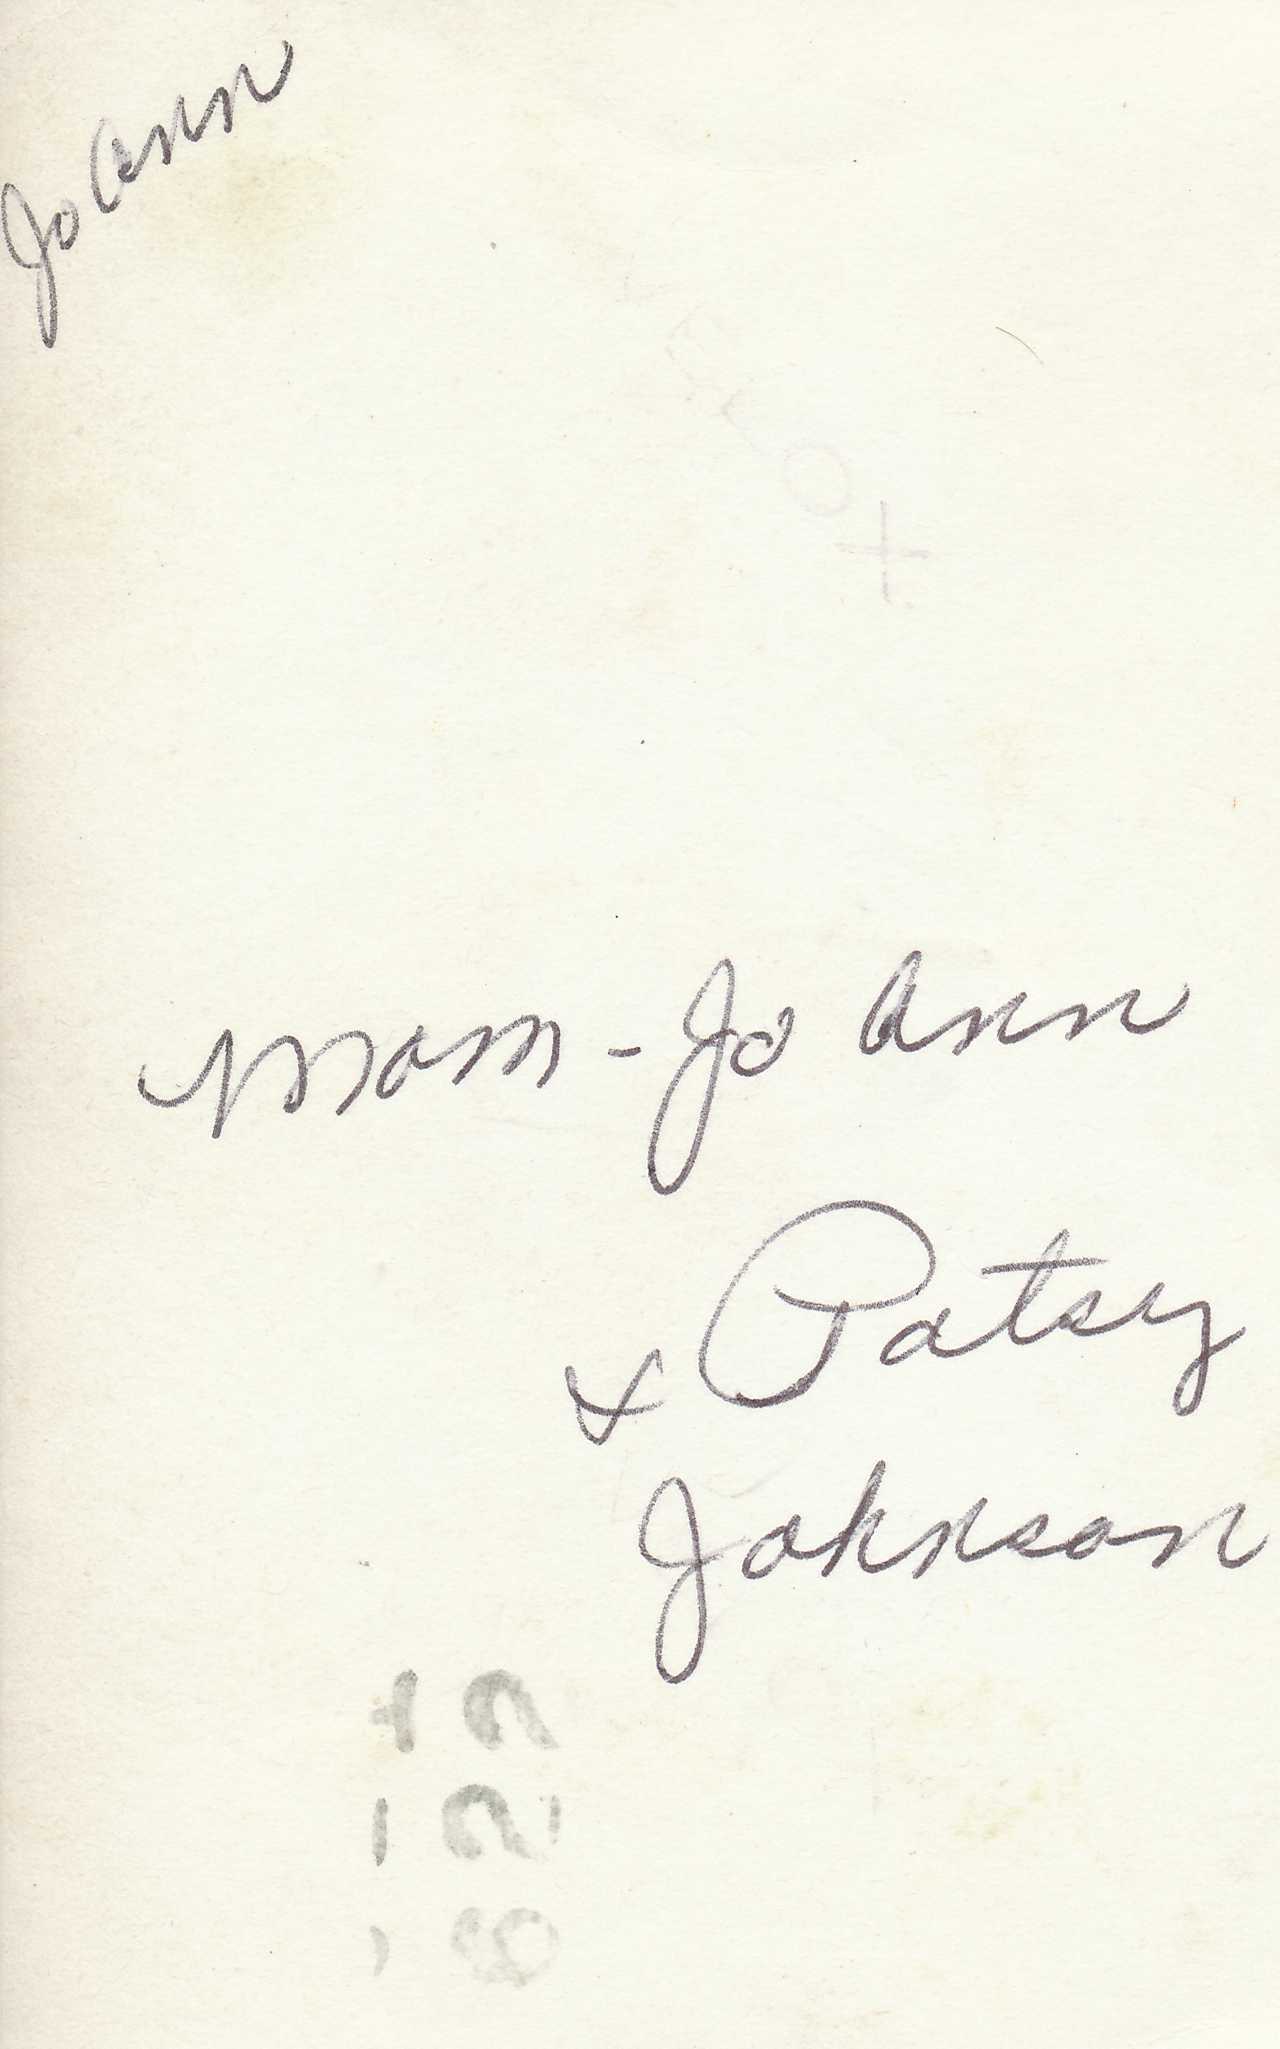 Jo Ann
Mom - Jo Ann
& Patsy
Johnson
822